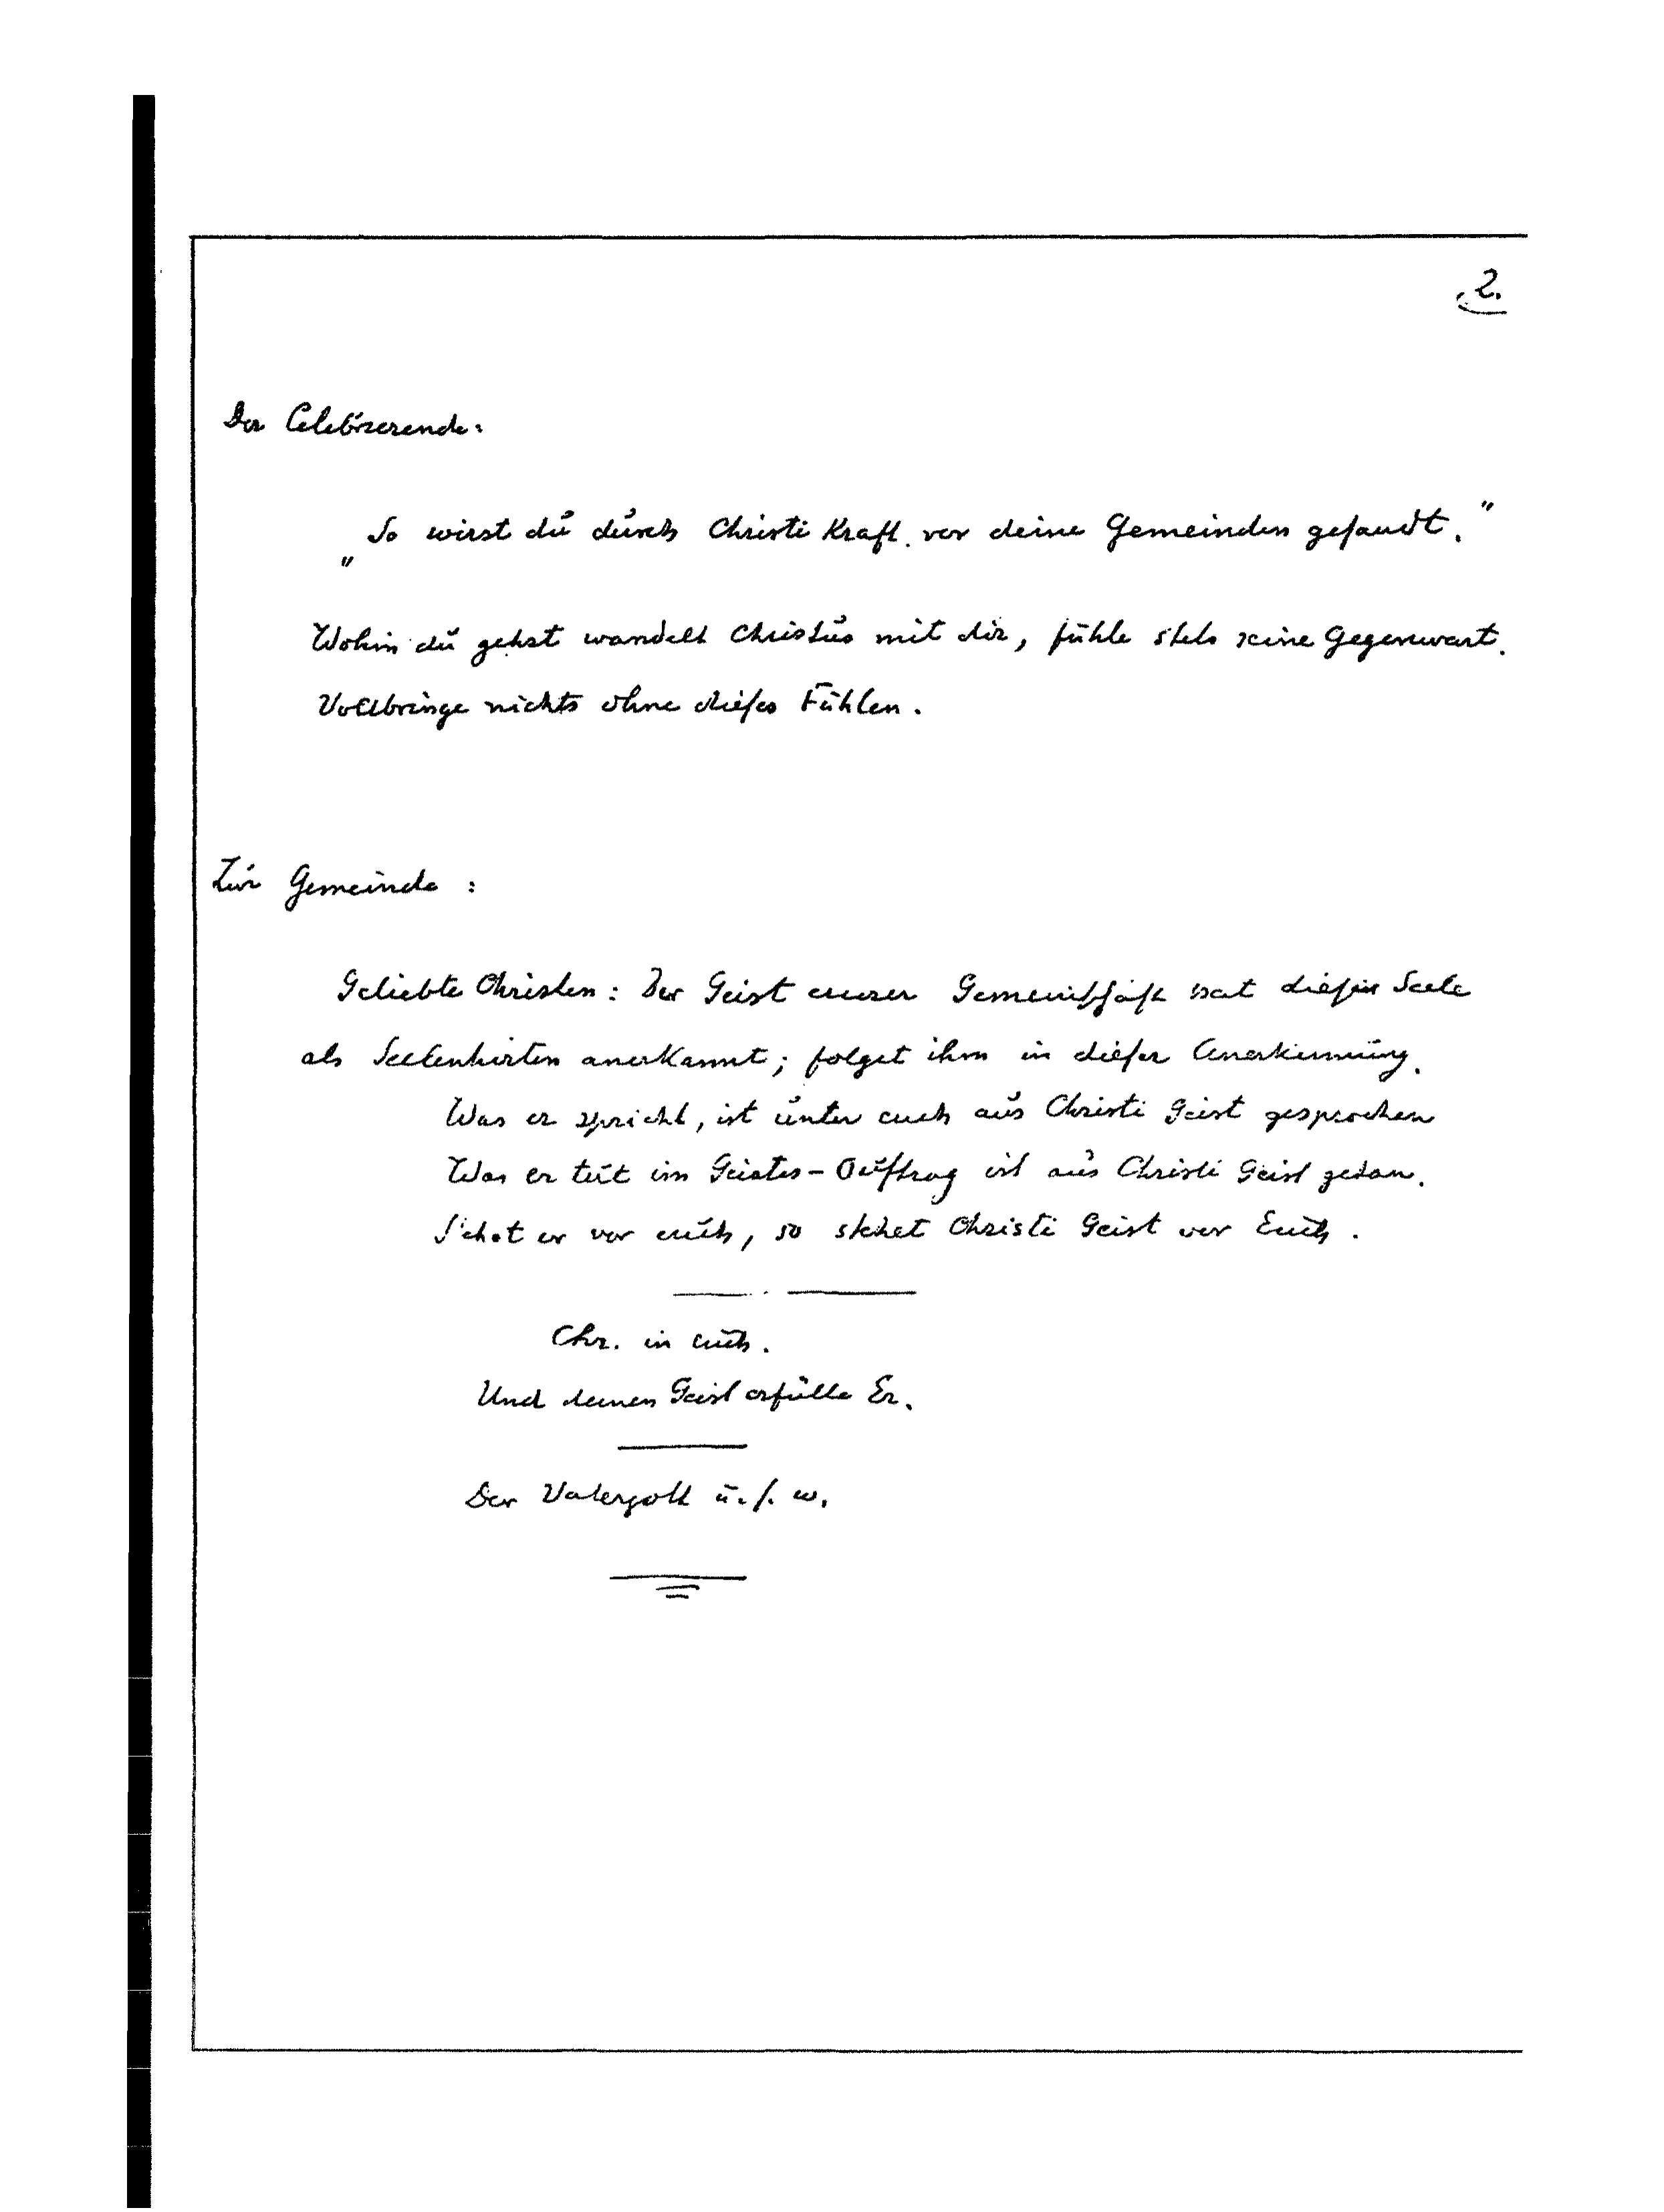 2.
Der Celebrierende:
„So wirst du durch Christi Kraft vor deine Gemeinden gesandt."
Wohin du gehst wandelt Christus mit dir, fühle stets seine Gegenwart.
Vollbringe nichts ohne dieses Fühlen.
Zur Gemeinde :
Geliebte Christen : Der Geist eurer Gemeinschaft hat diese Seele
als Seelenhirten anerkannt; folget ihm in dieser Anerkennung.
Was er spricht, ist unter euch aus Christi Geist gesprochen
Was er tut im Geistes-Auftrag ist aus Christi Geist getan.
Stehet er vor euch, so stehet Christi Geist vor Euch.
Chr. in euch.
Und deinen Geist erfülle Er.
Der Vatergott u. s. w.